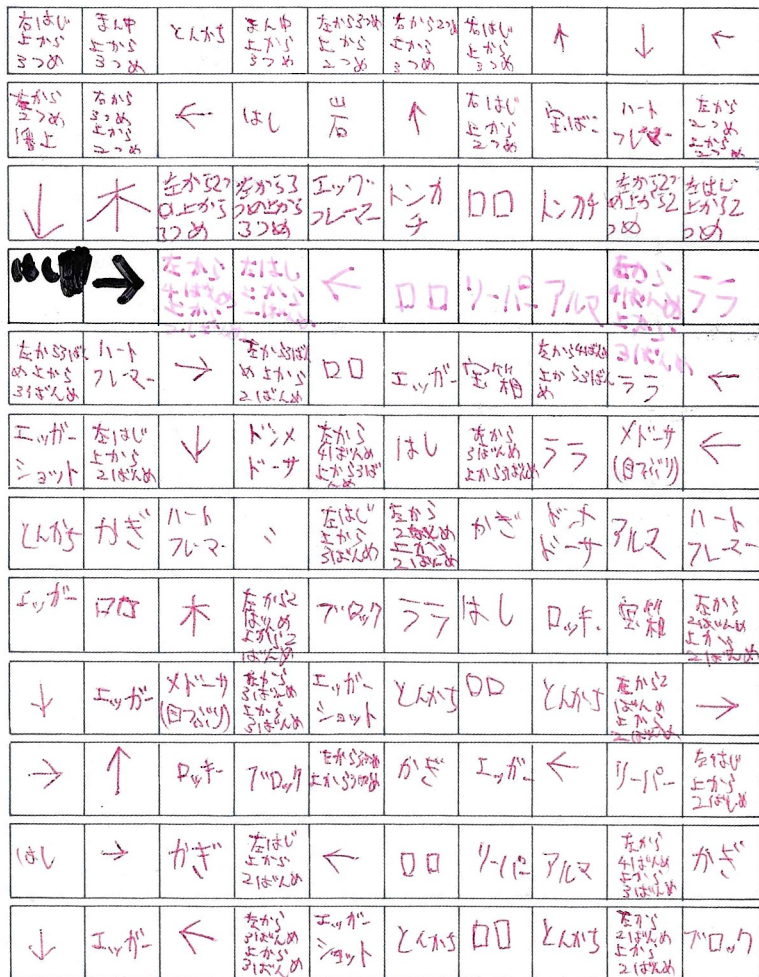 右はじ上から3つめ まん中上から3つめ とんかち まん中上から3つめ 左から3つめ上から2つめ 右から2つめ上から3つめ 右はじ上から3つめ ↑ ↓ ←
左から2つめ1番上 右から3つめ上から2つめ ← はし 岩 ↑ 右はじ上から2つめ 宝ばこ ハートフレーマー 左から2つめ上から2つめ
↓ 木 左から2つめ上から3つめ 左から3つめ上から3つめ エッグフレーマー トンカチ ロロ トンカチ 左から2つめ上から2つめ 左はじ上から2つめ
→ 左から4ばんめ上から2ばんめ ← ロロ リーパー アルマ 左から4ばんめ上から3ばんめ ララ
左から3ばんめ上から3ばんめ ハートフレーマー → 左から3ばんめ上から2ばんめ ロロ エッガー 宝箱 左から4ばんめ上から3ばんめ ララ ←
エッガーショット 左はじ上から2ばんめ ↓ ドンメドーサ 左から4ばんめ上から3ばんめ はし 左から3ばんめ上から3ばんめ ララ メドーサ(目つぶり) ←
とんかち かぎ ハートフレーマー 左はじ上から3ばんめ 左から2ばんめ上から2ばんめ かぎ ドンメドーサ アルマ ハートフレーマー
エッガー ロロ 木 左から2ばんめ上から2ばんめ ブロック ララ はし ロッキー 宝箱 左から2ばんめ上から2ばんめ
↓ エッガー メドーサ(目つぶり) 左から3ばんめ上から3ばんめ エッガーショット とんかち ロロ とんかち 左から2ばんめ上から2ばんめ →
→ ↑ ロッキー ブロック かぎ エッガー ← リーパー 左はじ上から2ばんめ
はし → かぎ 左はじ上から2ばんめ ← ロロ リーパー アルマ 左から4ばんめ上から3ばんめ かぎ
↓ エッガー ← 左から3ばんめ上から3ばんめ エッガーショット とんかち ロロ とんかち 左から2ばんめ上から2ばんめ ブロック